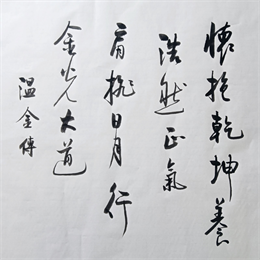 懷抱乾坤養
浩然正氣
肩挑日月行
金光大道
温金傳